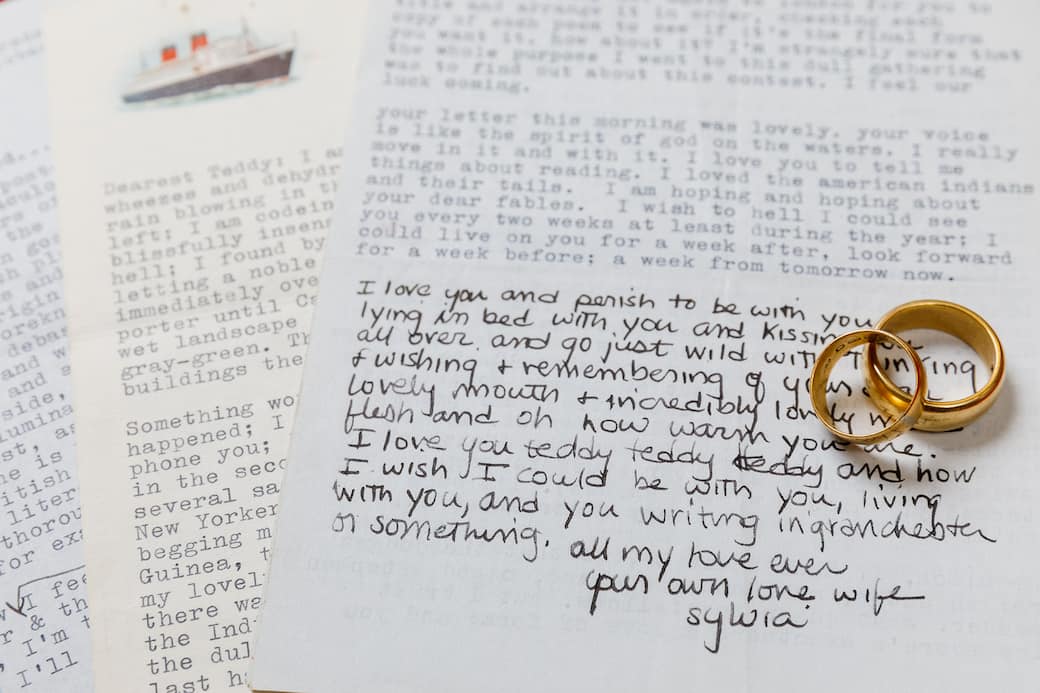 Dearest Teddy: I a
wheezes and dehydr
rain blowing in th
left; I am codein
blissfully insens
hell; I found by
letting a noble
immediately ove
porter until Ca
wet landscape
gray-green. Th
buildings the
Something wo
happened; I
phone you;
in the seco
several sa
New Yorker
begging m
Guinea, t
my lovel
there wa
the Ind
the dul
last h
title and arrange it in order, checking each
copy of each poem to see if it's the final form
you want it. how about it? I'm strangely sure that
the whole purpose I went to this dull gathering
was to find out about this contest. I feel our
luck coming.
your letter this morning was lovely. your voice
is like the spirit of god on the waters. I really
move in it and with it. I love you to tell me
things about reading. I loved the american indians
and their tails. I am hoping and hoping about
your dear fables. I wish to hell I could see
you every two weeks at least during the year; I
could live on you for a week after, look forward
for a week before; a week from tomorrow now.
I love you and perish to be with you
lying in bed with you and kissing
all over and go just wild with
& wishing & remembering of your
lovely mouth & incredibly lovely
flesh and oh how warm you are.
I love you teddy teddy teddy and how
I wish I could be with you, living
with you, and you writing in granchester
or something. all my love ever
your own love wife
sylvia